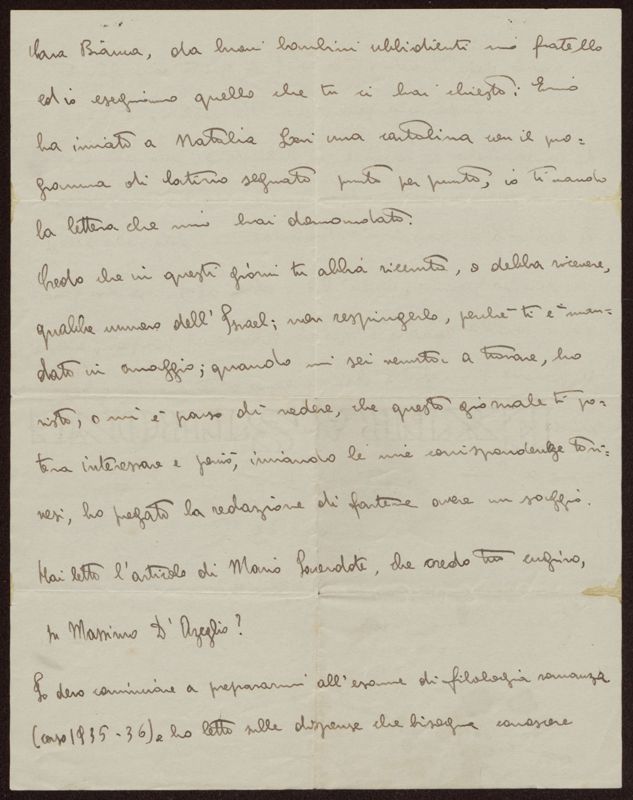 Cara Bianca, da buoni bambini ubbidienti mio fratello
ed io eseguiamo quello che tu ci hai chiesto: Ennio
ha inviato a Natalia Levi una cartolina con il pro=
gramma di latino segnato punto per punto, io ti mando
la lettera che mi hai domandato.
Credo che in questi giorni tu abbia ricevuto, o debba ricevere,
qualche numero dell'Israel; non respingerlo, perchè ti è man=
dato in omaggio; quando mi sei venuta a trovare, ho
visto, o mi è parso di vedere, che questo giornale ti po=
teva interessare e perciò, inviando le mie corrispondenze tori=
nesi, ho pregato la redazione di fartene avere un saggio.
Hai letto l'articolo di Mario Lovendote, che credo tuo cugino,
su Massimo D'Azeglio?
Io devo cominciare a prepararmi all'esame di filologia romanza
(corso 1935-36) e ho letto sulle dispense che bisogna conoscere